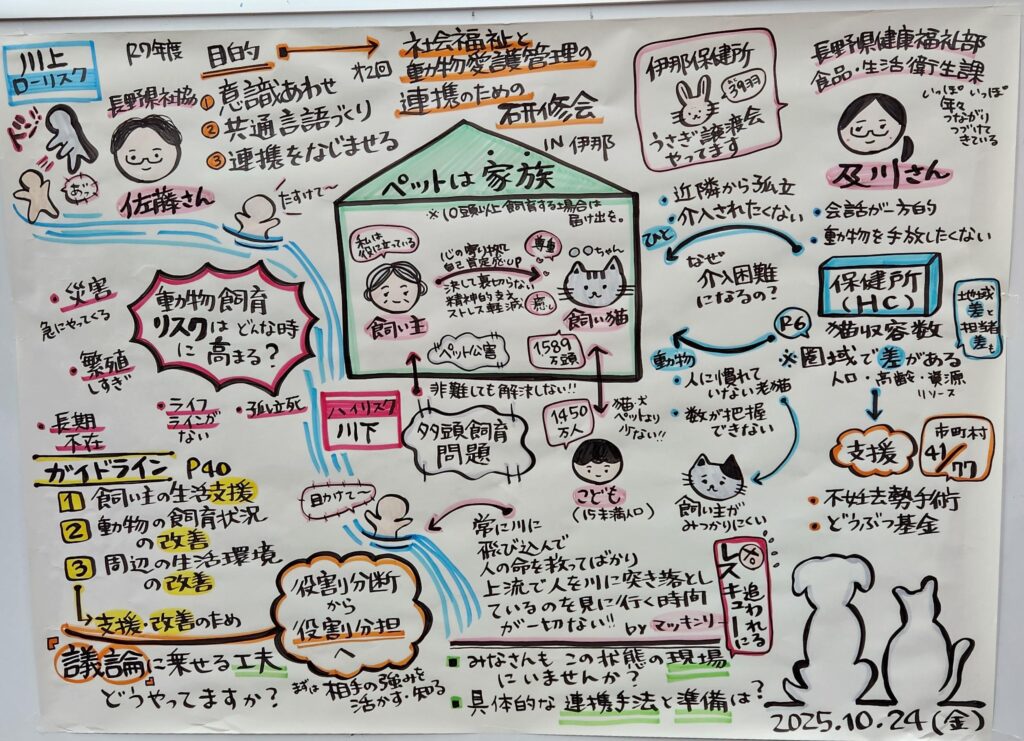 川上
ローリスク
R7年度
目的
長野県社協
① 意識あわせ
② 共通言語づくり
③ 連携をなじませる
佐藤さん
ドン
あっ
たすけて〜
第2回
社会福祉と
動物愛護管理の
連携のための
研修会
IN 伊那
伊那保健所
うさぎ譲渡会
やってます
長野県健康福祉部
食品・生活衛生課
いっぽいっぽ
年々
つながり
つづけて
きている
及川さん
ペットは家族
※10頭以上飼育する場合は
届け出を。
私は
役に立っている
心の寄り拠で
自己肯定感UP
尊重
〇〇ちゃん
決して裏切らない
精神的支え
ストレス軽減
癒し
飼い主
飼い猫
ペット公害
1589
万頭
・近隣から孤立
・介入されたくない
ひと
・会話が一方的
・動物を手放したくない
なぜ
介入困難
になるの?
動物
・人に慣れて
いない老猫
・数が把握
できない
飼い主が
みつかりにくい
保健所
(HC)
R6
猫収容数
※圏域で差がある
人口・高齢・資源
リソース
地域
差と
担当者
差も
支援
市町村
41/77
・不妊去勢手術
・どうぶつ基金
・災害
急にやってくる
・繁殖
しすぎ
・長期
不在
動物飼育
リスクはどんな時
に高まる?
・ライフ
ラインが
ない
・孤立死
ハイリスク
川下
非難しても解決しない!!
多頭飼育
問題
1450
万人
猫・犬
ペットより
少ない!!
こども
(15才未満人口)
ガイドライン P40
1 飼い主の生活支援
2 動物の飼育状況
の改善
3 周辺の生活環境
の改善
支援・改善のため
議論に乗せる工夫
どうやってますか?
役割り分断
から
役割り分担
へ
まずは相手の強みを
活かす・知る
常に川に
飛び込んで
人の命を救ってばかり
上流で人を川に突き落とし
ているのを見に行く時間
が一切ない!!
by マッキンリー
※レスキューに
追われる
みなさんもこの状態の現場
にいませんか?
具体的な連携手法と準備は?
2025.10.24(金)